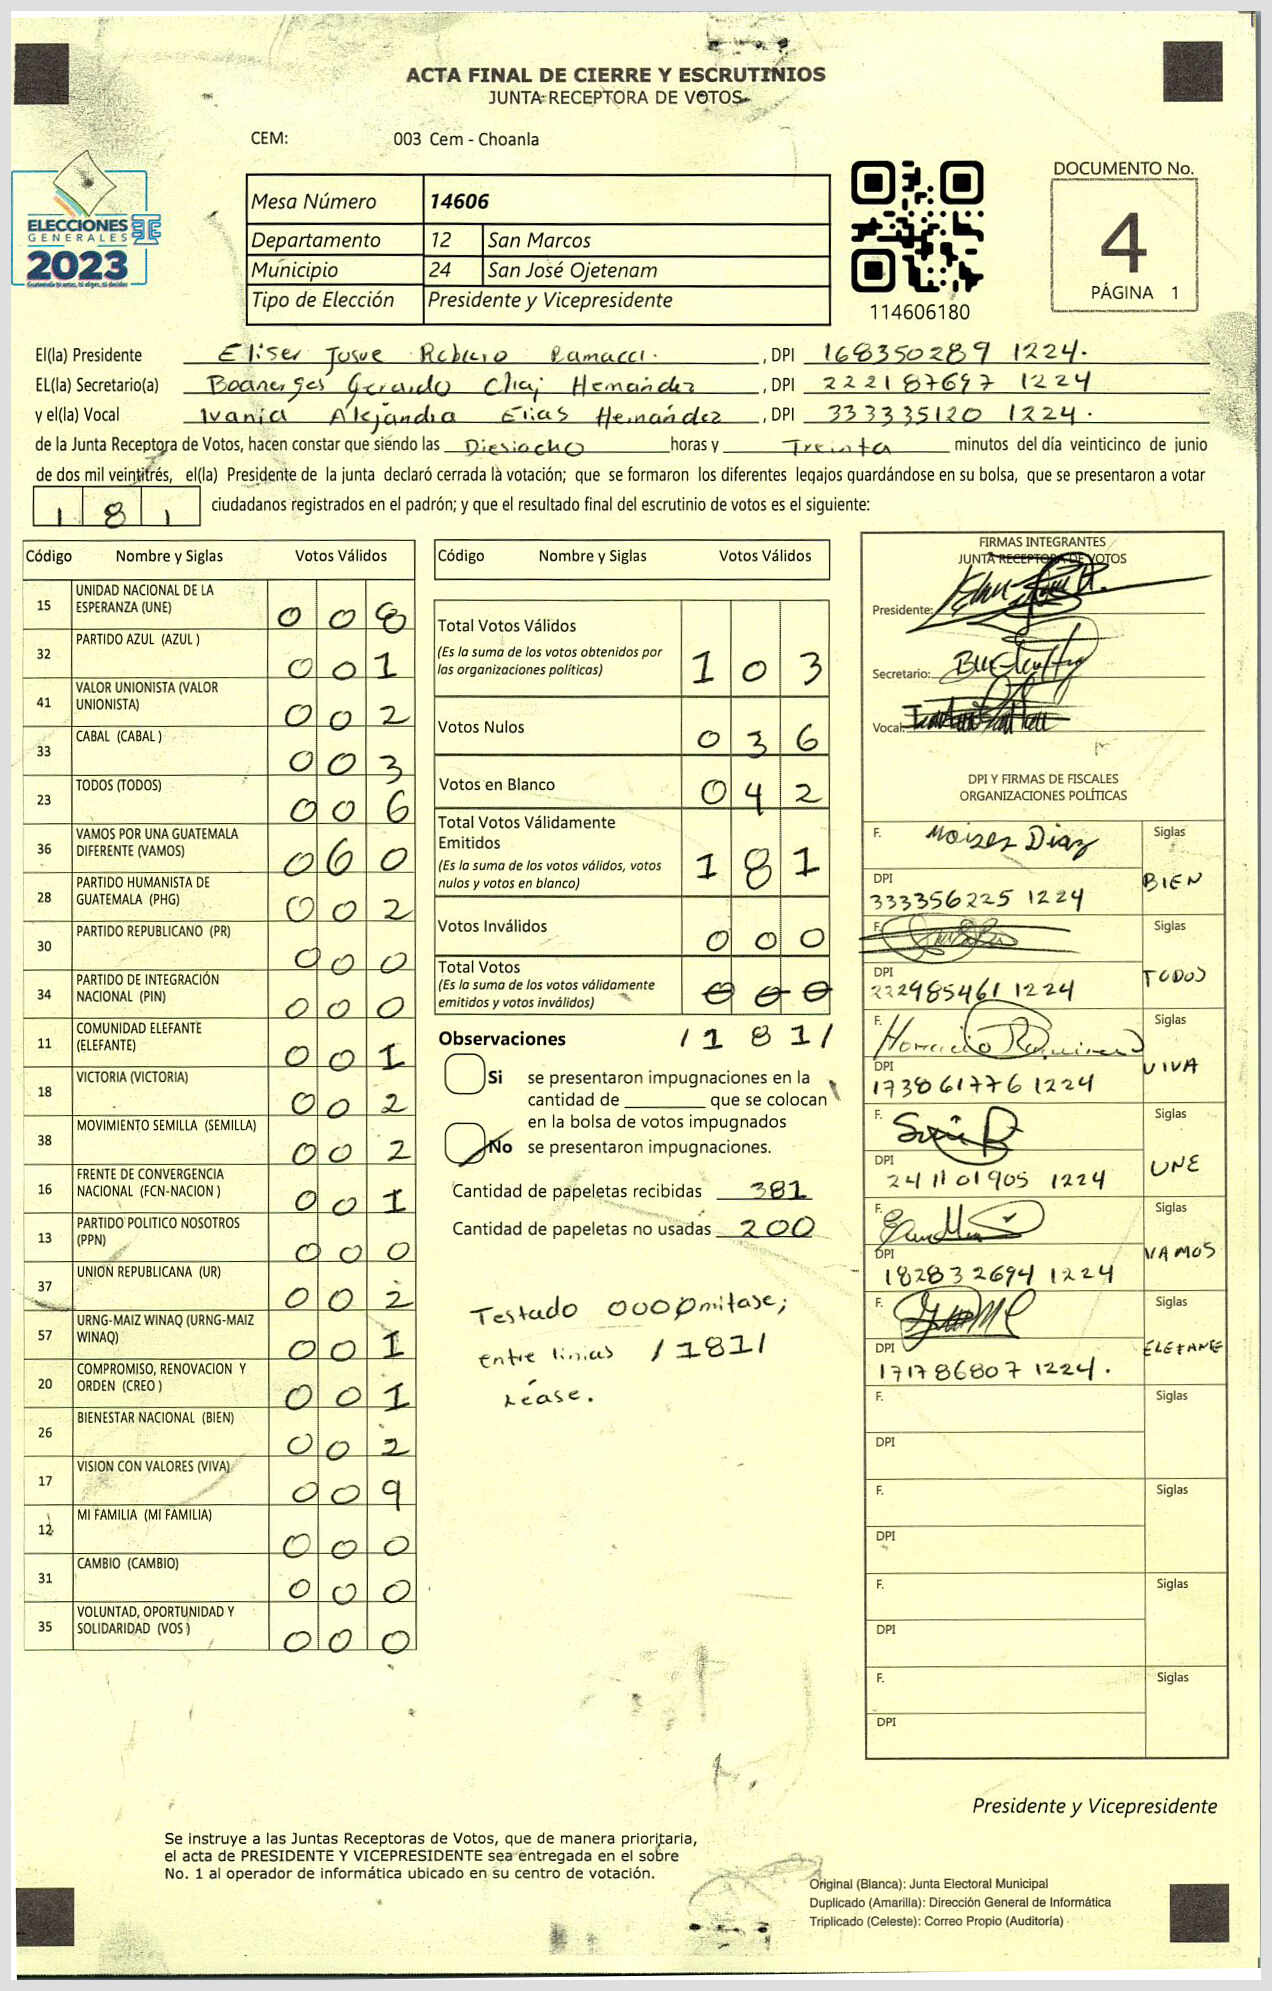 ACTA FINAL DE CIERRE Y ESCRUTINIOS
JUNTA RECEPTORA DE VOTOS
CEM: 003 Cem - Choanla
ELECCIONES
GENERALES
2023
Mesa Número 14606
Departamento 12 San Marcos
Municipio 24 San José Ojetenam
Tipo de Elección Presidente y Vicepresidente
114606180
DOCUMENTO No.
4
PÁGINA 1
El(la) Presidente Eliser Josue , DPI 168350289 1224.
EL(la) Secretario(a) Boanerges Gerardo Chaj Hernández , DPI 222187697 1224
y el(la) Vocal Ivania Alejandra Elias Hernández , DPI 333335120 1224.
de la Junta Receptora de Votos, hacen constar que siendo las Diesiocho horas y Treinta minutos del día veinticinco de junio
de dos mil veintitrés, el(la) Presidente de la junta declaró cerrada la votación; que se formaron los diferentes legajos guardándose en su bolsa, que se presentaron a votar
181 ciudadanos registrados en el padrón; y que el resultado final del escrutinio de votos es el siguiente:
Código Nombre y Siglas Votos Válidos
15 UNIDAD NACIONAL DE LA
ESPERANZA (UNE) 008
32 PARTIDO AZUL (AZUL ) 001
41 VALOR UNIONISTA (VALOR
UNIONISTA) 002
33 CABAL (CABAL ) 003
23 TODOS (TODOS) 006
36 VAMOS POR UNA GUATEMALA
DIFERENTE (VAMOS) 060
28 PARTIDO HUMANISTA DE
GUATEMALA (PHG) 002
30 PARTIDO REPUBLICANO (PR) 000
34 PARTIDO DE INTEGRACIÓN
NACIONAL (PIN) 000
11 COMUNIDAD ELEFANTE
(ELEFANTE) 001
18 VICTORIA (VICTORIA) 002
38 MOVIMIENTO SEMILLA (SEMILLA) 002
16 FRENTE DE CONVERGENCIA
NACIONAL (FCN-NACION ) 001
13 PARTIDO POLITICO NOSOTROS
(PPN) 000
37 UNION REPUBLICANA (UR) 002
57 URNG-MAIZ WINAQ (URNG-MAIZ
WINAQ) 001
20 COMPROMISO, RENOVACION Y
ORDEN (CREO ) 001
26 BIENESTAR NACIONAL (BIEN) 002
17 VISION CON VALORES (VIVA) 009
12 MI FAMILIA (MI FAMILIA) 000
31 CAMBIO (CAMBIO) 000
35 VOLUNTAD, OPORTUNIDAD Y
SOLIDARIDAD (VOS ) 000
Código Nombre y Siglas Votos Válidos
Total Votos Válidos
(Es la suma de los votos obtenidos por
las organizaciones políticas) 103
Votos Nulos 036
Votos en Blanco 042
Total Votos Válidamente
Emitidos
(Es la suma de los votos válidos, votos
nulos y votos en blanco) 181
Votos Inválidos 000
Total Votos
(Es la suma de los votos válidamente
emitidos y votos inválidos) 000
Observaciones /181/
Si se presentaron impugnaciones en la
cantidad de ________ que se colocan
en la bolsa de votos impugnados
No se presentaron impugnaciones.
Cantidad de papeletas recibidas 381
Cantidad de papeletas no usadas 200
Testado 000 Omitase;
entre linias /181/
Léase.
FIRMAS INTEGRANTES
JUNTA RECEPTORA DE VOTOS
Presidente:
Secretario:
Vocal:
DPI Y FIRMAS DE FISCALES
ORGANIZACIONES POLÍTICAS
F. Moises Diaz Siglas
DPI 333356225 1224 BIEN
F. Siglas
DPI 222985461 1224 TODOS
F. Horacio Ramirez Siglas
DPI 173861776 1224 VIVA
F. Siglas
DPI 241101905 1224 UNE
F. Siglas
DPI 182832694 1224 VAMOS
F. Siglas
DPI 171786807 1224. ELEFANE
F. Siglas
DPI
F. Siglas
DPI
F. Siglas
DPI
F. Siglas
DPI
Presidente y Vicepresidente
Se instruye a las Juntas Receptoras de Votos, que de manera prioritaria,
el acta de PRESIDENTE Y VICEPRESIDENTE sea entregada en el sobre
No. 1 al operador de informática ubicado en su centro de votación.
Original (Blanca): Junta Electoral Municipal
Duplicado (Amarilla): Dirección General de Informática
Triplicado (Celeste): Correo Propio (Auditoría)